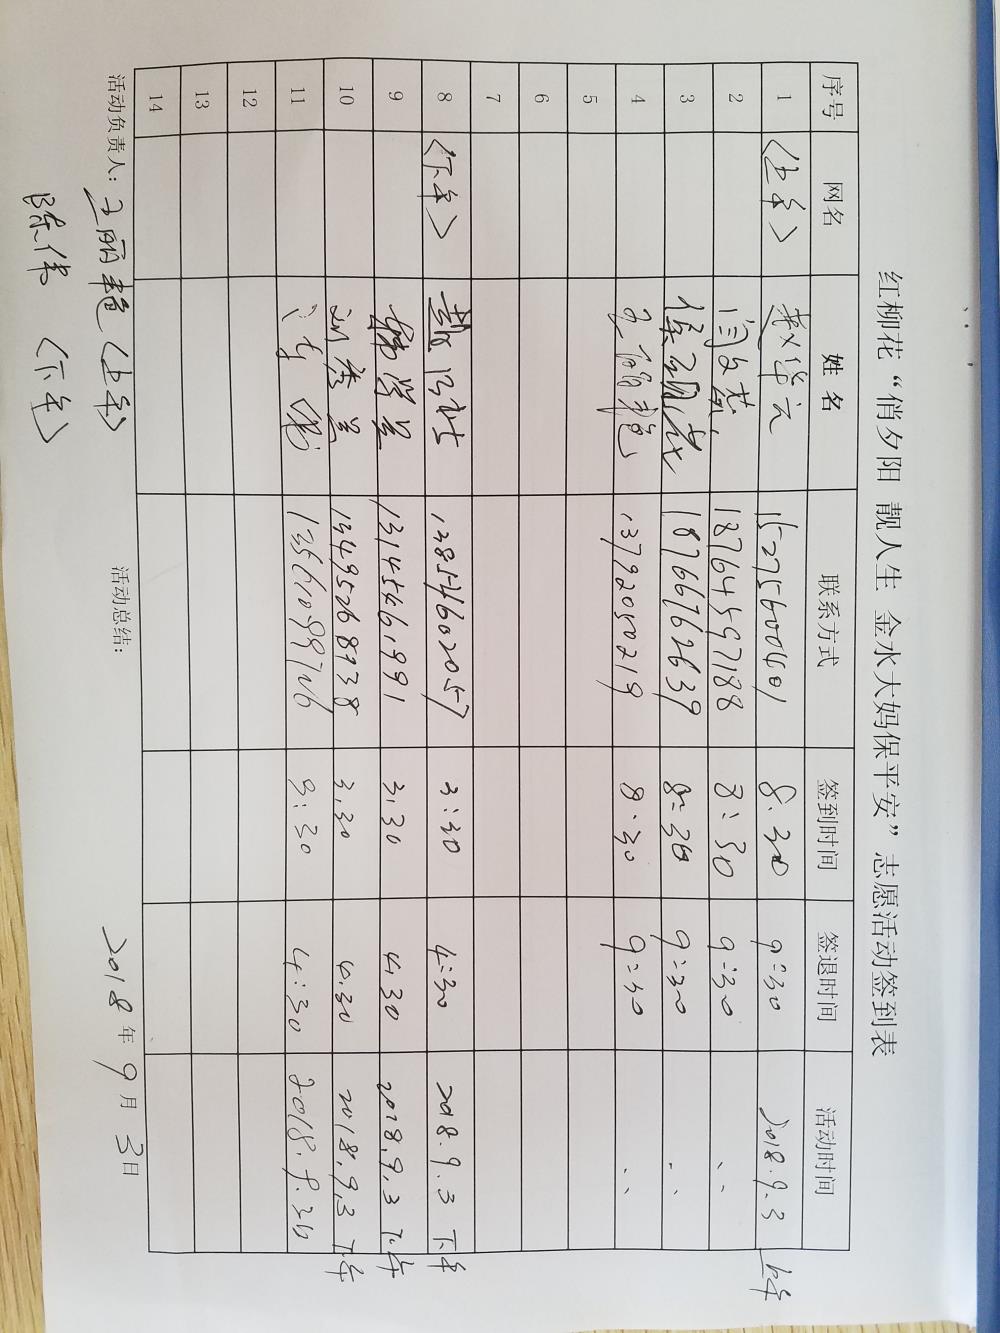 红柳花“俏夕阳 靓人生 金水大妈保平安”志愿活动签到表
序号 网名 姓名 联系方式 签到时间 签退时间 活动时间
1 〈上午〉 15275600401 8:30 9:30 2018.9.3 上午
2 闫文芬 18764597188 8:30 9:30 〃
3 18766762639 8:30 9:30 〃
4 王丽艳 13792050219 8:30 9:30 〃
5
6
7
8 〈下午〉 13854602057 3:30 4:30 2018.9.3 下午
9 13145461991 3:30 4:30 2018.9.3 下午
10 刘秀兰 13495268938 3:30 4:30 2018.9.3 下午
11 3:30 4:30
12
13
14
活动负责人: 王丽艳〈上午〉 活动总结: 2018年9月3日
陈伟〈下午〉